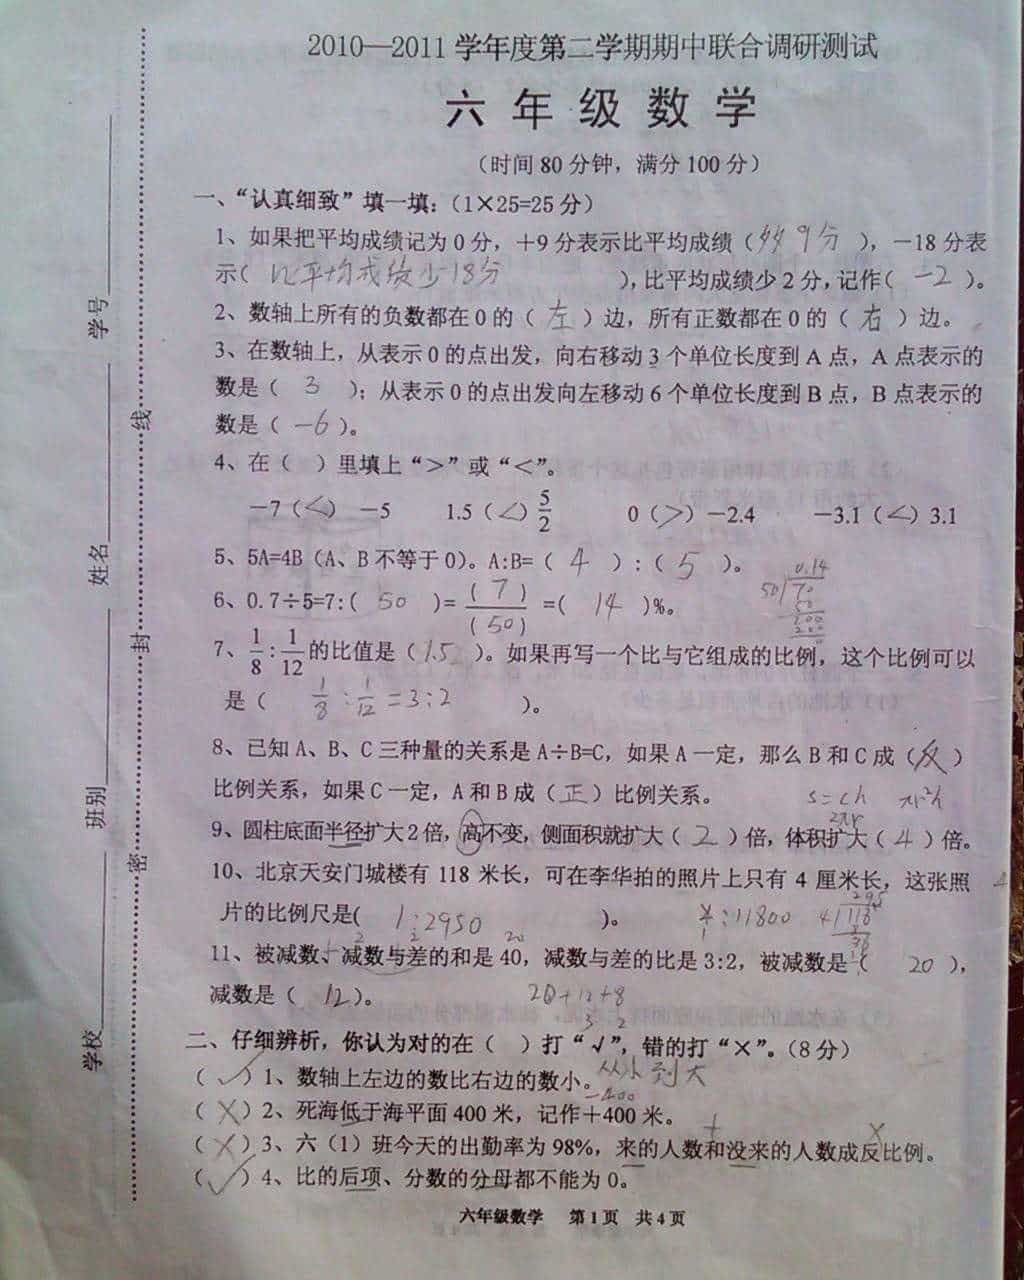 2010—2011学年度第二学期期中联合调研测试
六年级数学
（时间80分钟，满分100分）
一、“认真细致”填一填：（1×25=25分）
1、如果把平均成绩记为0分，＋9分表示比平均成绩（多9分），－18分表
示（比平均成绩少18分），比平均成绩少2分，记作（－2）。
2、数轴上所有的负数都在0的（左）边，所有正数都在0的（右）边。
3、在数轴上，从表示0的点出发，向右移动3个单位长度到A点，A点表示的
数是（3）；从表示0的点出发向左移动6个单位长度到B点，B点表示的
数是（－6）。
4、在（ ）里填上“>”或“<”。
－7（<）－5 1.5（<）5/2 0（>）－2.4 －3.1（<）3.1
5、5A=4B（A、B不等于0）。A:B=（4）:（5）。
6、0.7÷5=7:（50）=（7）/（50）=（14）%。
0.14
50 70
50
200
200
0
7、1/8:1/12的比值是（1.5）。如果再写一个比与它组成的比例，这个比例可以
是（1/8:1/12=3:2）。
8、已知A、B、C三种量的关系是A÷B=C，如果A一定，那么B和C成（反）
比例关系，如果C一定，A和B成（正）比例关系。
S=ch πr²h
2πr
9、圆柱底面半径扩大2倍，高不变，侧面积就扩大（2）倍，体积扩大（4）倍。
10、北京天安门城楼有118米长，可在李华拍的照片上只有4厘米长，这张照
片的比例尺是（1:2950）。
4:11800
1
11、被减数、减数与差的和是40，减数与差的比是3:2，被减数是（20），
减数是（12）。
20+12+8
3 2
二、仔细辨析，你认为对的在（ ）打“√”，错的打“×”。（8分）
（√）1、数轴上左边的数比右边的数小。从小到大
－400
（×）2、死海低于海平面400米，记作＋400米。
（×）3、六（1）班今天的出勤率为98%，来的人数和没来的人数成反比例。
（√）4、比的后项、分数的分母都不能为0。
六年级数学 第1页 共4页
学号
姓名
班别
学校
线
封
密